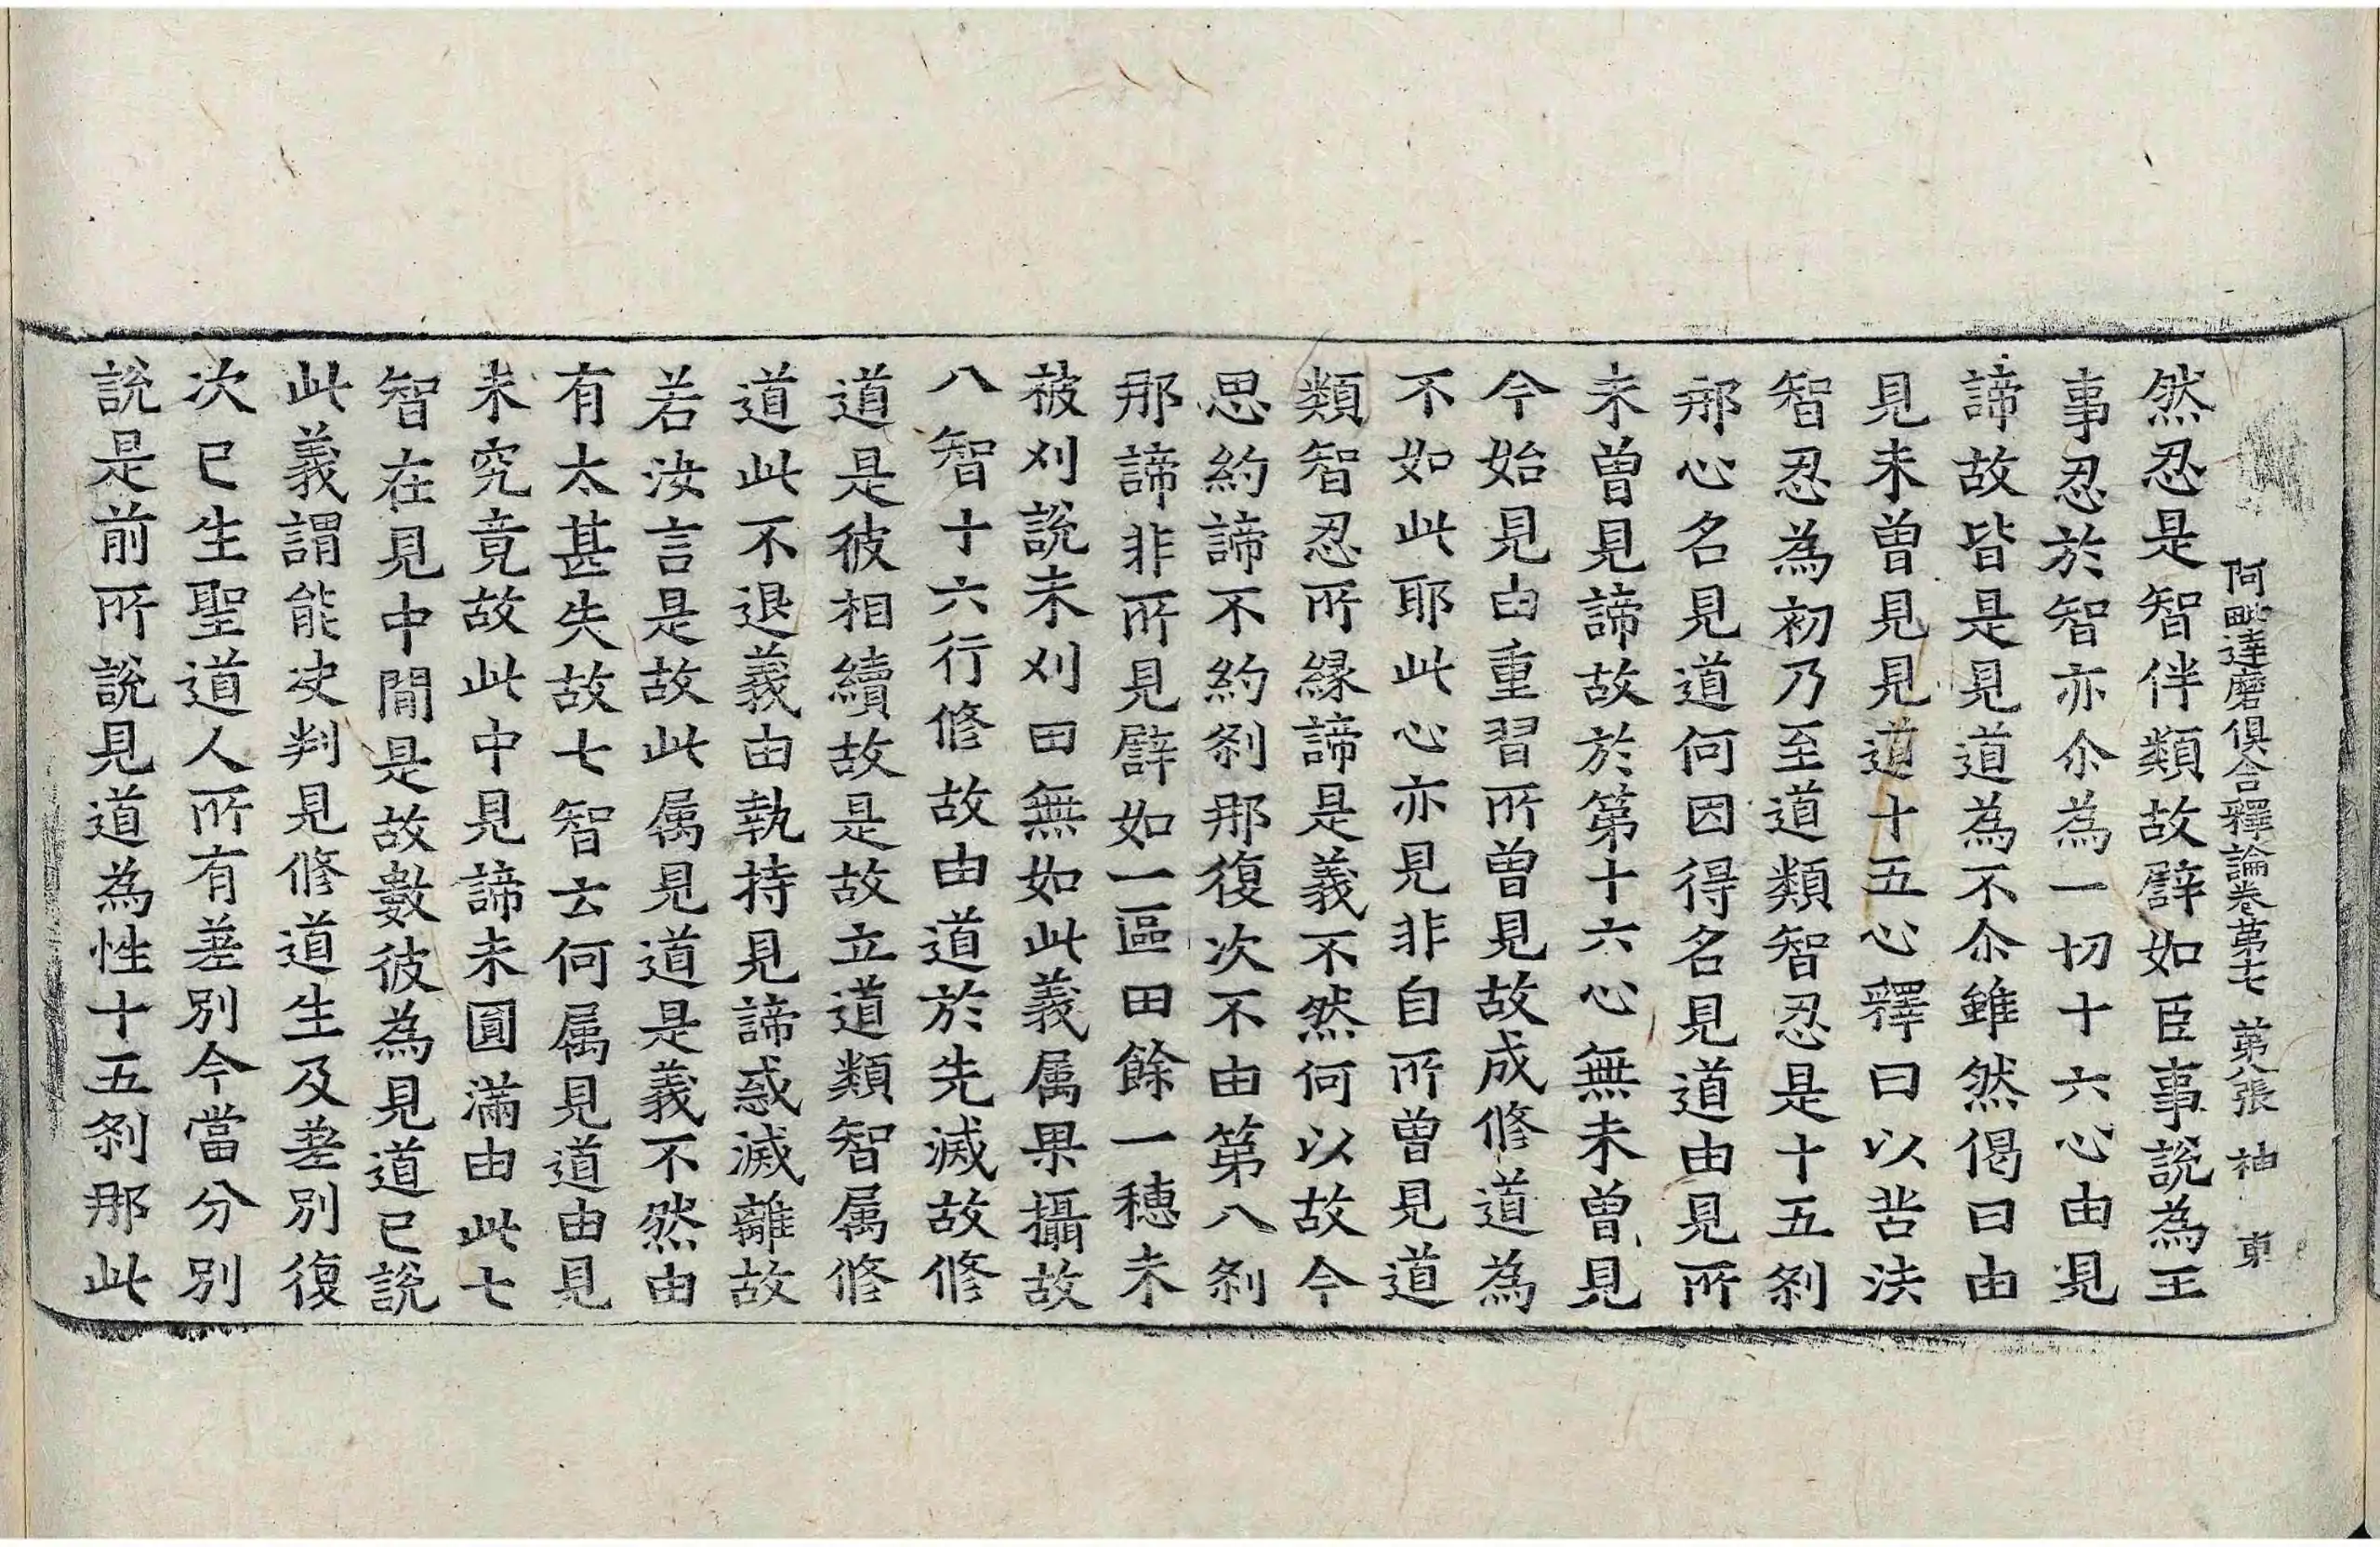 阿毗達磨俱舍釋論卷第十七 第八張 神 東
然忍是智伴類故譬如臣事說為王
事忍於智亦尒為一切十六心由見
諦故皆是見道為不尒雖然偈曰由
見未曾見見道十五心釋曰以苦法
智忍為初乃至道類智忍是十五剎
那心名見道何因得名見道由見所
未曾見諦故於第十六心無未曾見
今始見由重習所曾見故成修道為
不如此耶此心亦見非自所曾見道
類智忍所緣諦是義不然何以故今
思約諦不約剎那復次不由第八剎
那諦非所見譬如一區田餘一穗未
被刈說未刈田無如此義属果攝故
八智十六行修故由道於先滅故修
道是彼相續故是故立道類智属修
道此不退義由執持見諦惑滅離故
若汝言是故此属見道是義不然由
有太甚失故七智云何属見道由見
未究竟故此中見諦未圓滿由此七
智在見中間是故數彼為見道已說
此義謂能决判見修道生及差別復
次已生聖道人所有差別今當分別
說是前所說見道為性十五剎那此